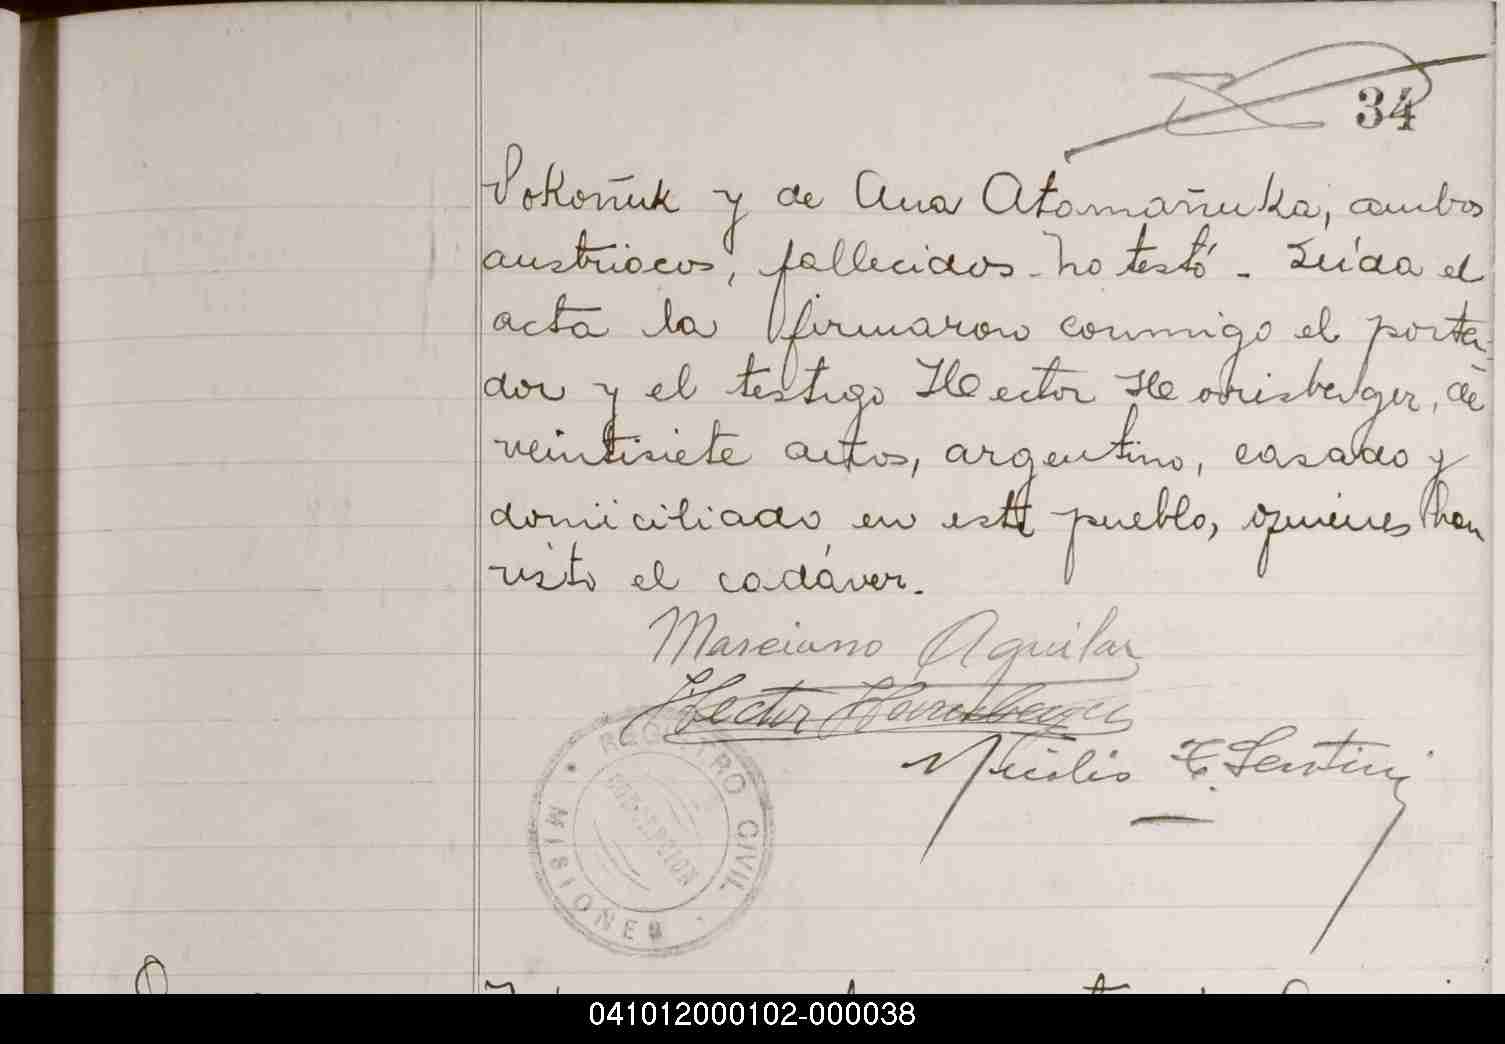 34
Sokoñuk y de Ana Atamañuka, ambos
austriacos, fallecidos - No testó - Leída el
acta la firmaron conmigo el porta-
dor y el testigo Hector Horrisberger, de
veintisiete años, argentino, casado y
domiciliado en este pueblo, quienes han
visto el cadáver.
Marciano Aguilar
Hector Horrisberger
REGISTRO CIVIL
CONCEPCION
MISIONES
041012000102-000038